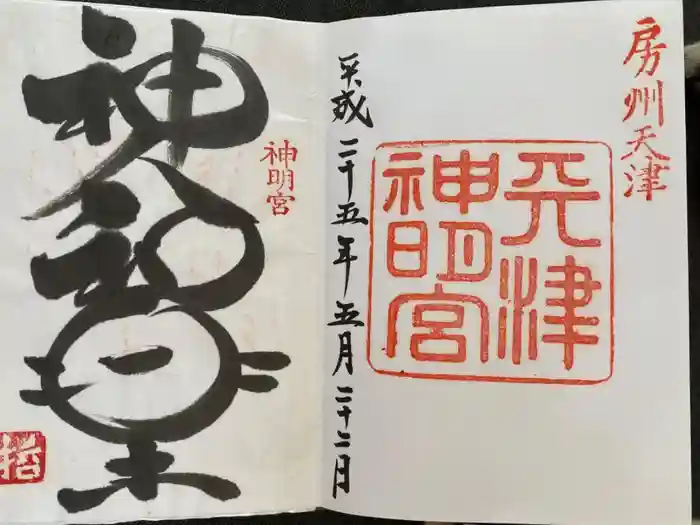 房州天津
天津
神明宮
平成二十五年五月二十二日
神明宮
神